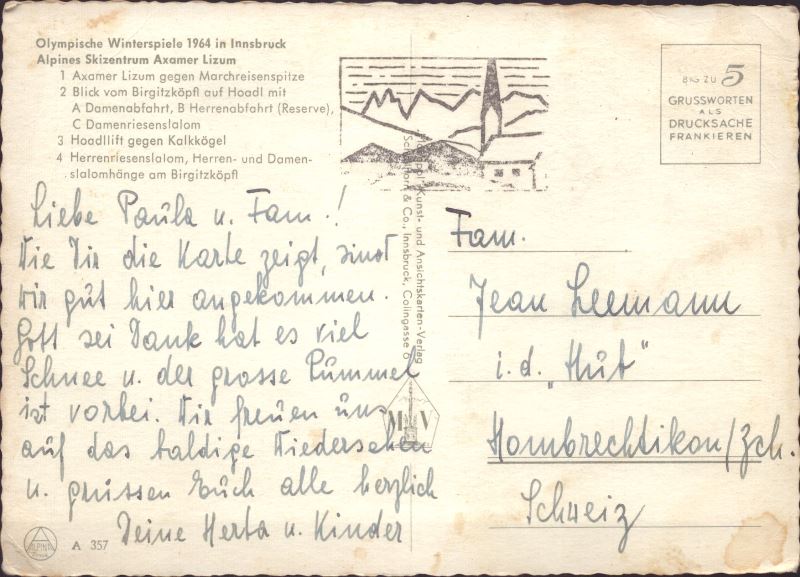 Olympische Winterspiele 1964 in Innsbruck
Alpines Skizentrum Axamer Lizum
1 Axamer Lizum gegen Marchreisenspitze
2 Blick vom Birgitzköpfl auf Hoadl mit
A Damenabfahrt, B Herrenabfahrt (Reserve),
C Damenriesenslalom
3 Hoadllift gegen Kalkkögel
4 Herrenriesenslalom, Herren- und Damen-
slalomhänge am Birgitzköpfl
Liebe Paula u. Fam.!
Wie Dir die Karte zeigt, sind
wir gut hier angekommen.
Gott sei Dank hat es viel
Schnee u. der grosse Rummel
ist vorbei. Wir freuen uns
auf das baldige Wiedersehen
u. grüssen Euch alle herzlich
Deine Herta u. Kinder
ALPINA
A 357
Kunst- und Ansichtskarten-Verlag
& Co., Innsbruck, Colingasse
M V
BIS ZU 5
GRUSSWORTEN
ALS
DRUCKSACHE
FRANKIEREN
Fam.
Jean Leemann
i. d. "Hut"
Hombrechtikon/Zch.
Schweiz